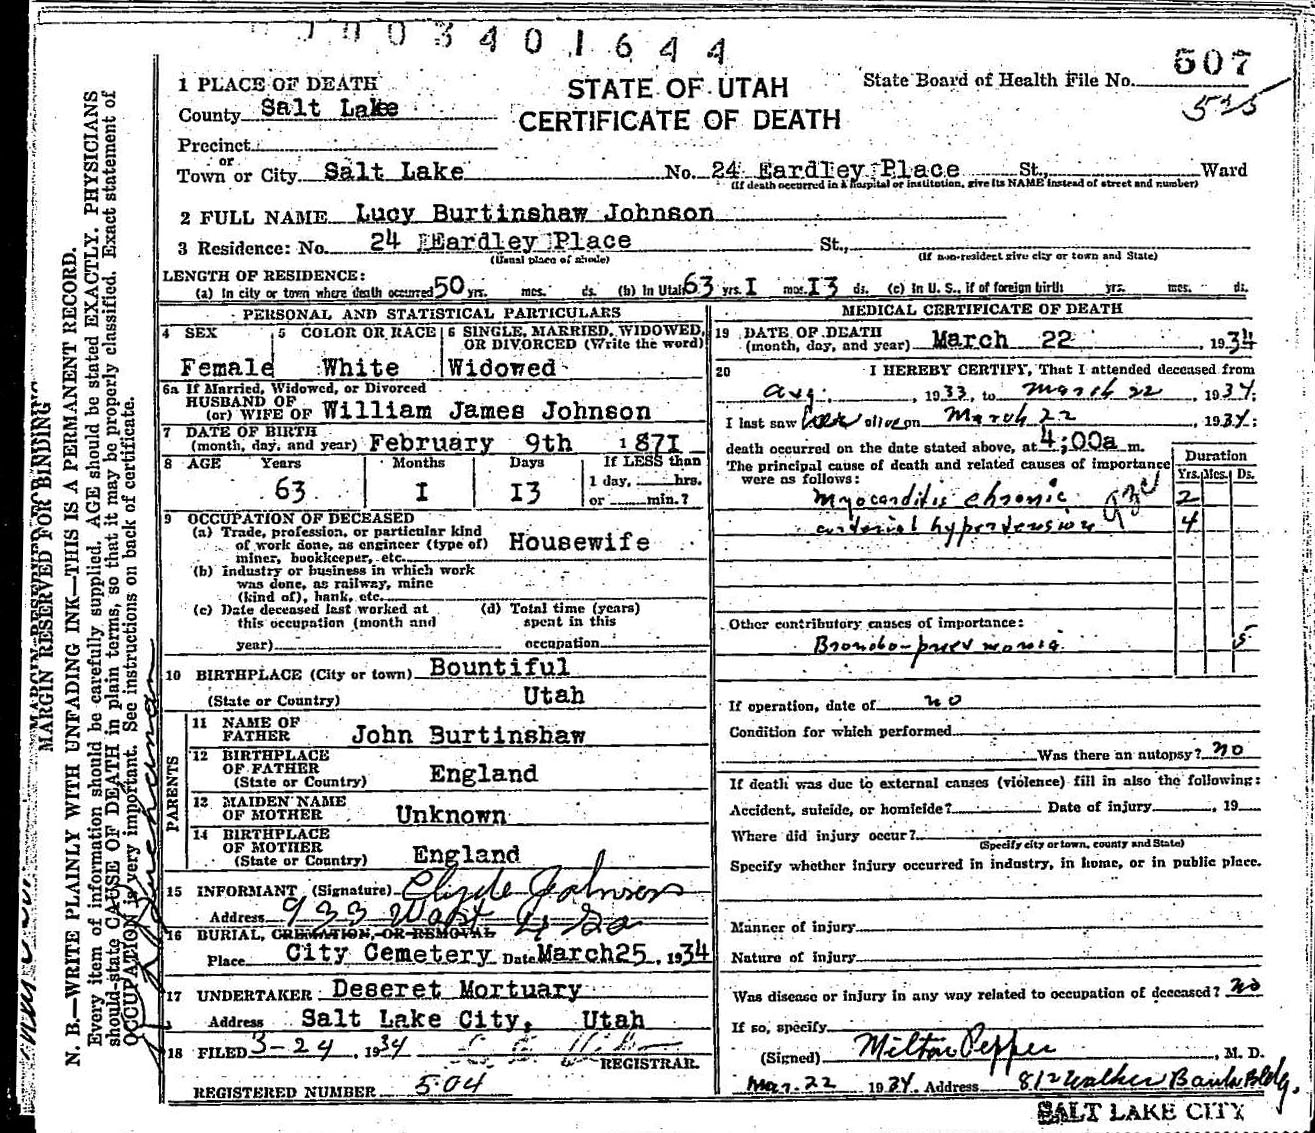 1003401644
STATE OF UTAH
CERTIFICATE OF DEATH
State Board of Health File No. 507
535
1 PLACE OF DEATH
County Salt Lake
Precinct
or
Town or City Salt Lake No. 24 Eardley Place St., Ward
(If death occurred in a hospital or institution, give its NAME instead of street and number)
2 FULL NAME Lucy Burtinshaw Johnson
3 Residence: No. 24 Eardley Place St.,
(Usual place of abode) (If non-resident give city or town and State)
LENGTH OF RESIDENCE:
(a) In city or town where death occurred 50 yrs. mos. ds. (b) In Utah 63 yrs. I mos. I3 ds. (c) In U. S., if of foreign birth yrs. mos. ds.
PERSONAL AND STATISTICAL PARTICULARS
4 SEX 5 COLOR OR RACE 6 SINGLE, MARRIED, WIDOWED,
OR DIVORCED (Write the word)
Female White Widowed
6a If Married, Widowed, or Divorced
HUSBAND OF
(or) WIFE OF William James Johnson
7 DATE OF BIRTH
(month, day, and year) February 9th 187I
8 AGE Years Months Days If LESS than
1 day, hrs.
63 I I3
or min.?
9 OCCUPATION OF DECEASED
(a) Trade, profession, or particular kind
of work done, as engineer (type of)
miner, bookkeeper, etc. Housewife
(b) Industry or business in which work
was done, as railway, mine
(kind of), bank, etc.
(c) Date deceased last worked at (d) Total time (years)
this occupation (month and spent in this
year) occupation
10 BIRTHPLACE (City or town) Bountiful
(State or Country) Utah
PARENTS
11 NAME OF
FATHER John Burtinshaw
12 BIRTHPLACE
OF FATHER England
(State or Country)
13 MAIDEN NAME
OF MOTHER Unknown
14 BIRTHPLACE
OF MOTHER
(State or Country) England
15 INFORMANT (Signature) Clyde Johnson
Address 933 West 4 So
16 BURIAL, CREMATION, OR REMOVAL
Place City Cemetery Date March 25, 1934
17 UNDERTAKER Deseret Mortuary
Address Salt Lake City, Utah
18 FILED 3-24, 1934
REGISTRAR.
REGISTERED NUMBER 504
MEDICAL CERTIFICATE OF DEATH
19 DATE OF DEATH
(month, day, and year) March 22, 1934
20 I HEREBY CERTIFY, That I attended deceased from
Aug., 1933, to March 22, 1934;
I last saw her alive on March 22 1934;
death occurred on the date stated above, at 4;00a m.
The principal cause of death and related causes of importance
were as follows:
Duration
Yrs. Mos. Ds.
Myocarditis chronic 2
arterial hypertension 4
Other contributory causes of importance:
Broncho-pneumonia 5
If operation, date of no
Condition for which performed
Was there an autopsy? no
If death was due to external causes (violence) fill in also the following:
Accident, suicide, or homicide? Date of injury , 19
Where did injury occur?
(Specify city or town, county and State)
Specify whether injury occurred in industry, in home, or in public place.
Manner of injury
Nature of injury
Was disease or injury in any way related to occupation of deceased? no
If so, specify
(Signed) Milton Pepper, M. D.
Mar. 22 1934 Address 812 Walker Bank Bldg.
SALT LAKE CITY
MARGIN RESERVED FOR BINDING
N. B.—WRITE PLAINLY WITH UNFADING INK—THIS IS A PERMANENT RECORD.
Every item of information should be carefully supplied. AGE should be stated EXACTLY. PHYSICIANS
should state CAUSE OF DEATH in plain terms, so that it may be properly classified. Exact statement of
OCCUPATION is very important. See instructions on back of certificate.